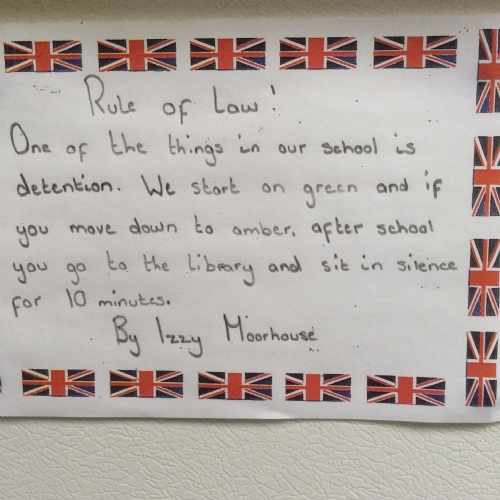 Rule of Law!
One of the things in our school is
detention. We start on green and if
you move down to amber, after school
you go to the library and sit in silence
for 10 minutes.
By Izzy Moorhouse